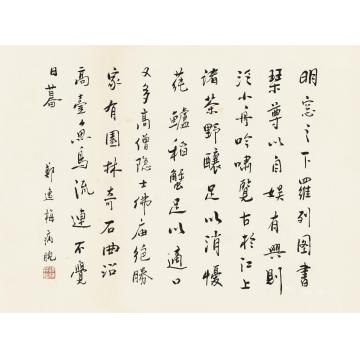 明窓之下羅列圖書
琴尊以自娛有興則
泛小舟吟嘯覽古於江上
渚茶野釀足以消懮
莼鱸稻蟹足以適口
又多高僧隱士佛庙絕勝
家有園林奇石曲沼
高臺魚鳥流連不覺
日暮
鄭逸梅病腕